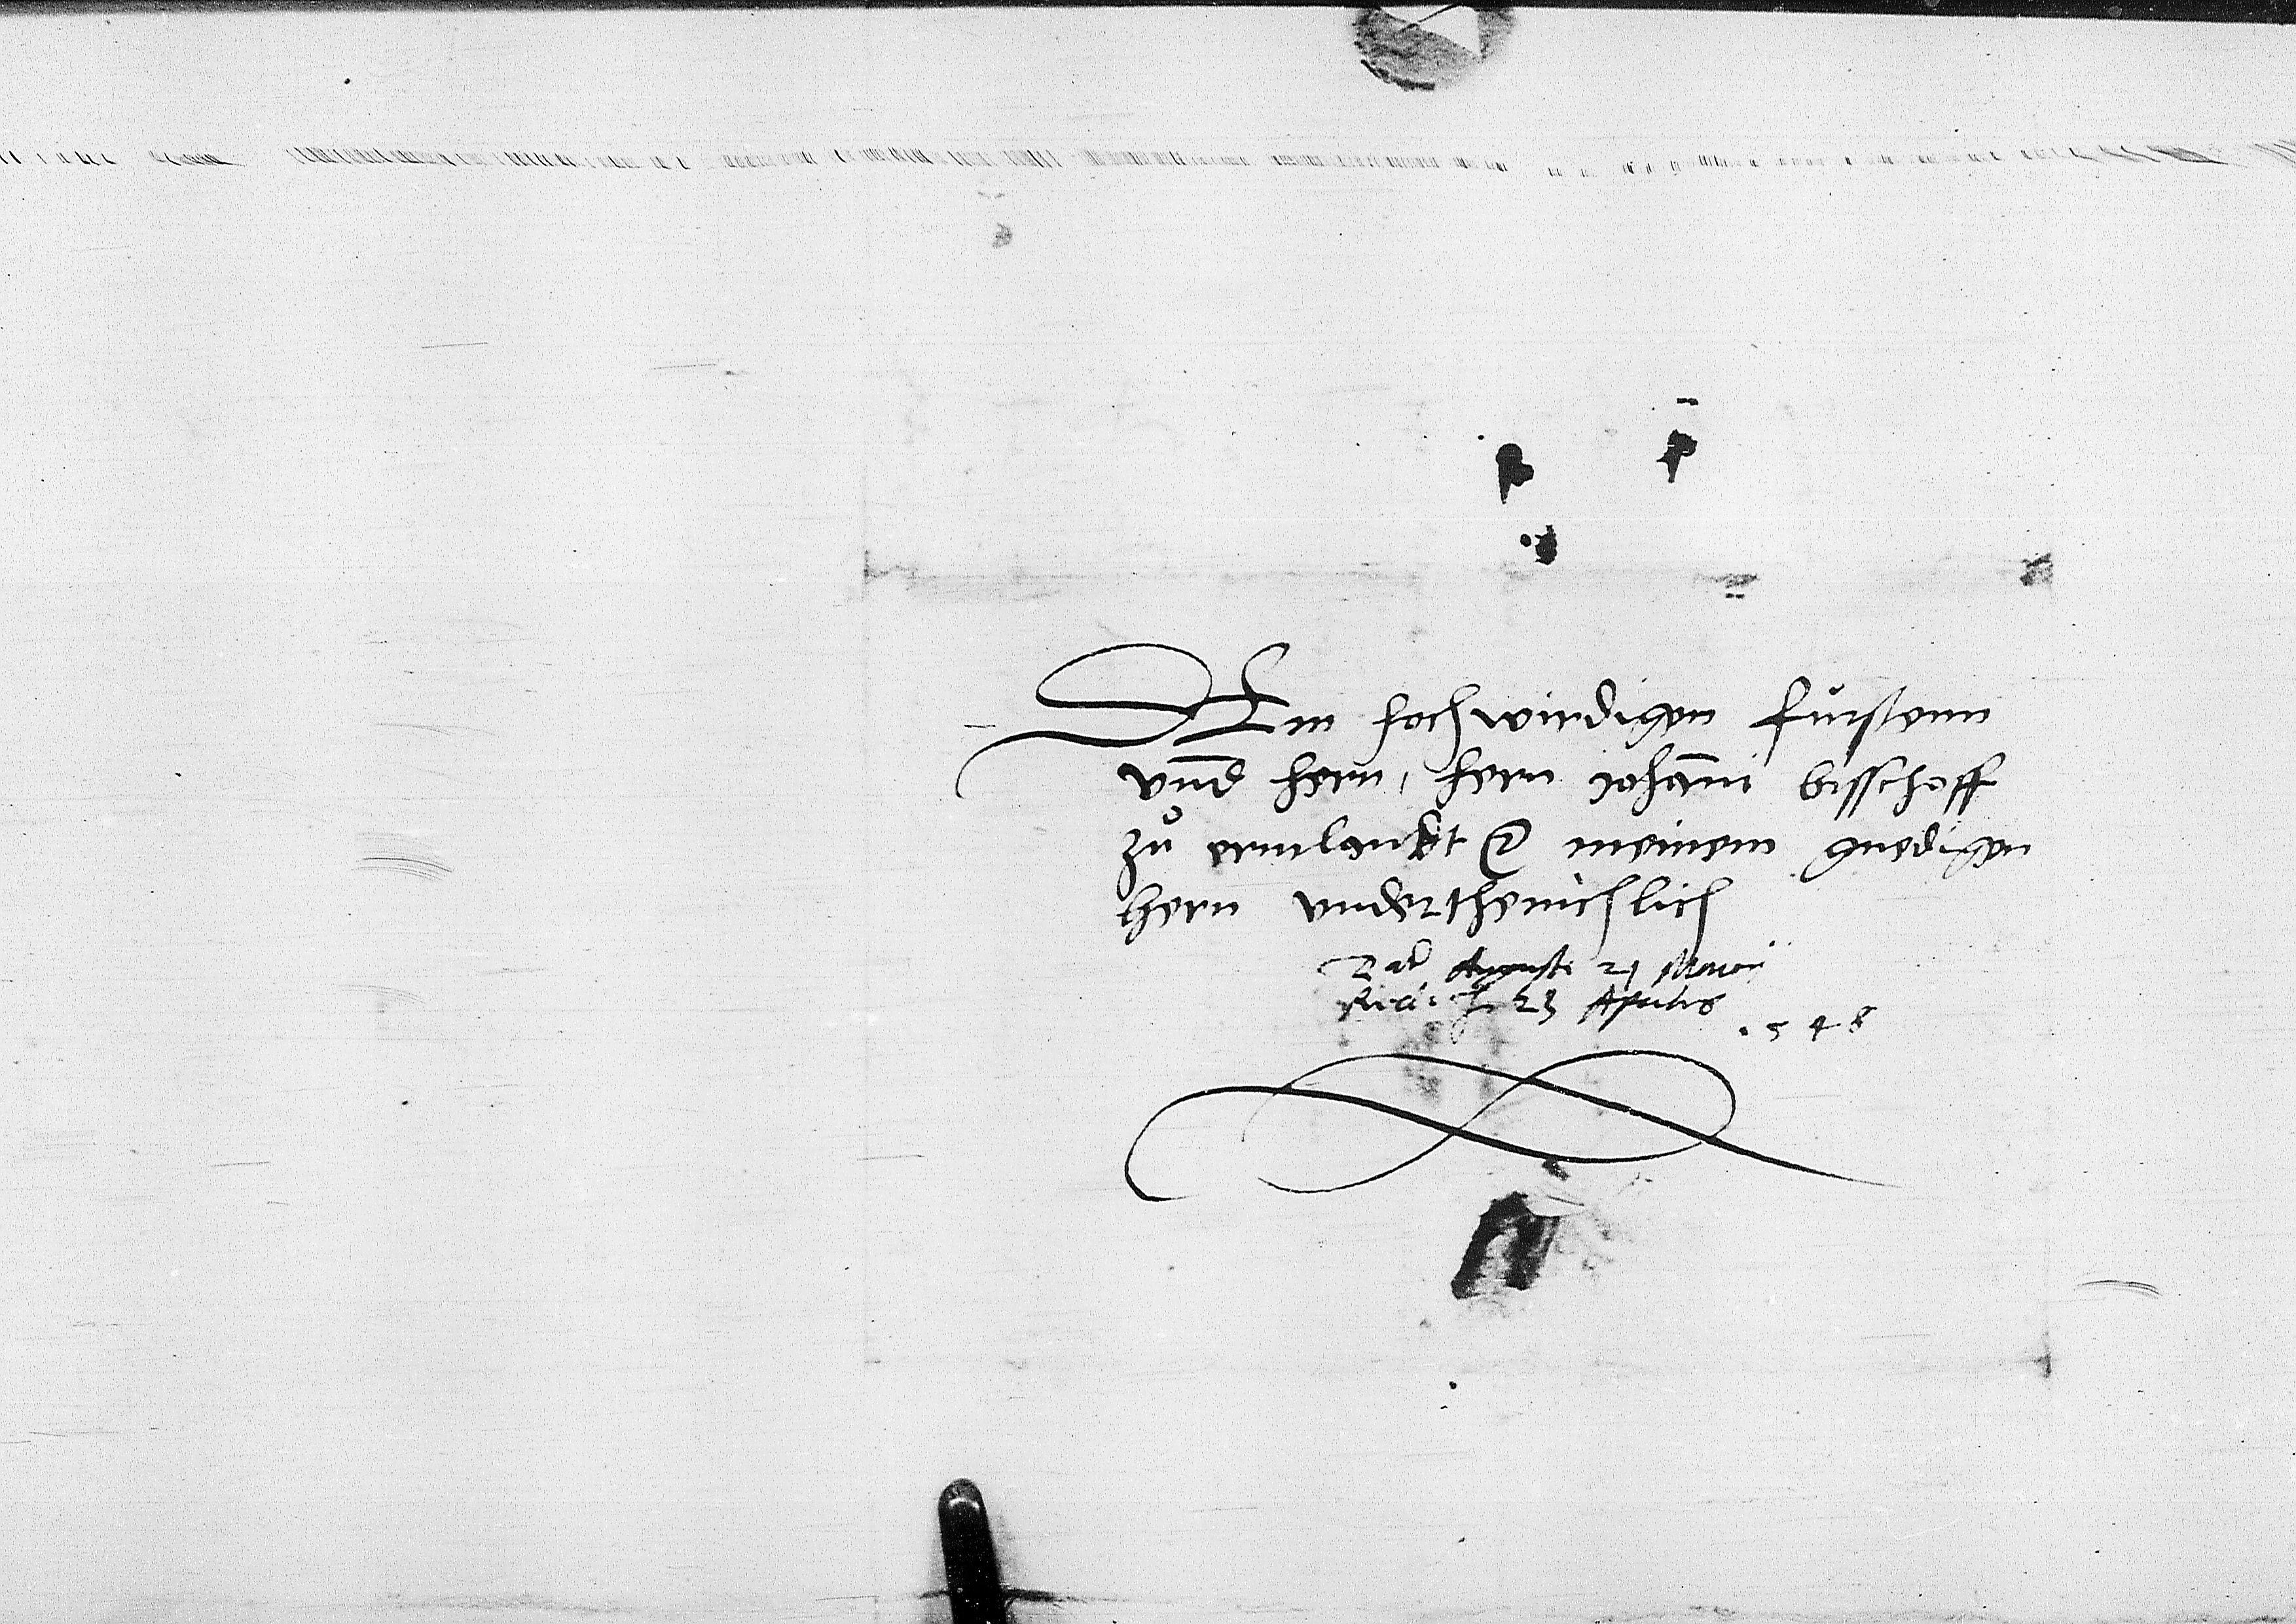 Dem hochwirdigen fürstenn
vnnd hern, hern Johanni bisschoff
zů ermlandt &c meinem gnedigen
hern vnderthenichlich
Dat Auguste 21 Marcii
Recepte 23 Aprilis
1548